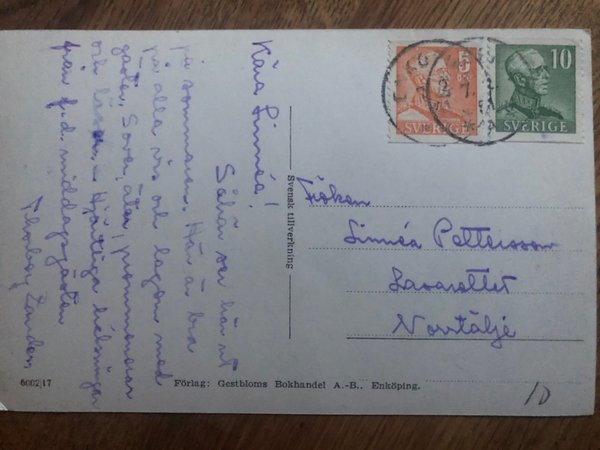 Kära Linnéa!
Såhär ser här ut
på sommaren. Här är bra
på alla vis och lagom med
gäster. Sover, äter, promenerar
och läser. Hjärtliga hälsningar
från f.d. middagsgästen
Svensk tillverkning
5
SVERIGE
10
SVERIGE
Fröken
Linnéa Pettersson
Lasarettet
Norrtälje
6002/17
Förlag: Gestbloms Bokhandel A.-B., Enköping.
10